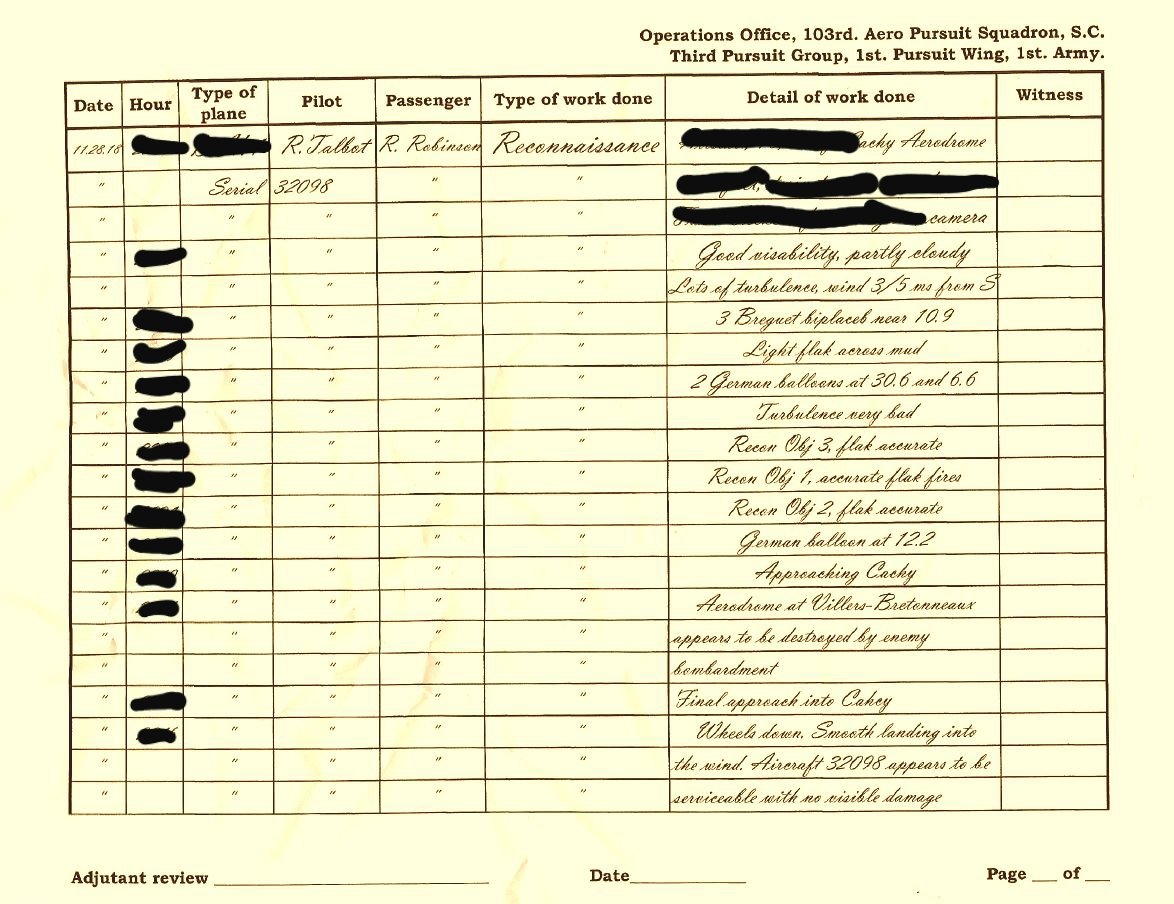 Operations Office, 103rd. Aero Pursuit Squadron, S.C.
Third Pursuit Group, 1st. Pursuit Wing, 1st. Army.
Date Hour Type of plane Pilot Passenger Type of work done Detail of work done Witness
11.28.18 R. Talbot R. Robinson Reconnaissance Aerodrome
" Serial 32098 " "
" " " " " camera
" " " " " Good visability, partly cloudy
" " " " " Lots of turbulence, wind 3/5 ms from S
" " " " " 3 Breguet biplaceb near 10.9
" " " " " Light flak across mud
" " " " " 2 German balloons at 30.6 and 6.6
" " " " " Turbulence very bad
" " " " " Recon Obj 3, flak accurate
" " " " " Recon Obj 1, accurate flak fires
" " " " " Recon Obj 2, flak accurate
" " " " " German balloon at 12.2
" " " " " Approaching Cachy
" " " " " Aerodrome at Villers-Bretonneaux
" " " " " appears to be destroyed by enemy
" " " " " bombardment
" " " " " Final approach into Cahcy
" " " " " Wheels down. Smooth landing into
" " " " " the wind. Aircraft 32098 appears to be
" " " " " serviceable with no visible damage
Adjutant review Date Page of